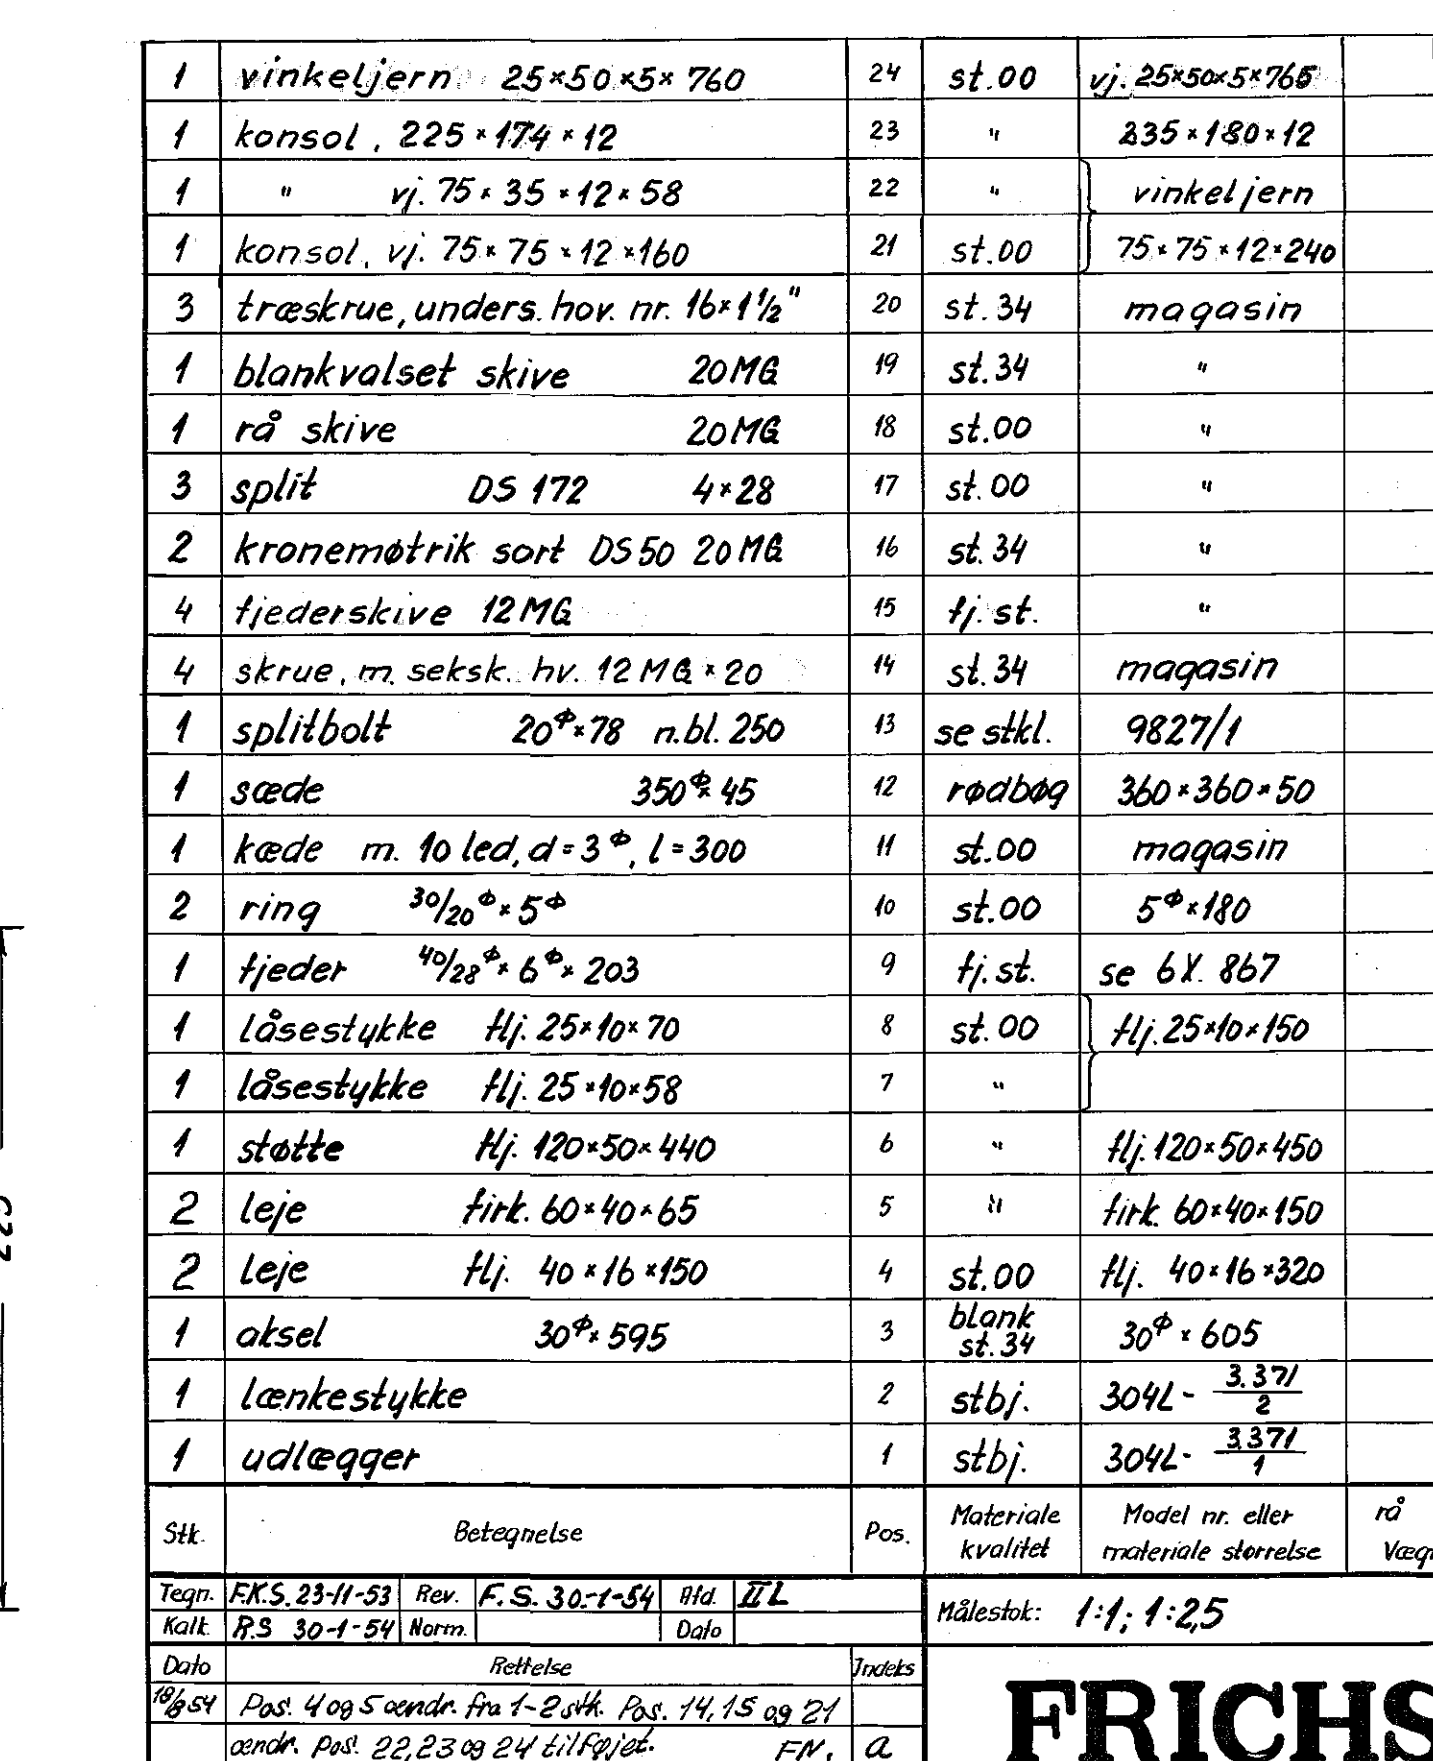 1 vinkeljern 25×50×5×760 24 st.00 vj. 25×50×5×765
1 konsol, 225×174×12 23 " 235×180×12
1 " vj. 75×35×12×58 22 " vinkeljern
1 konsol, vj. 75×75×12×160 21 st.00 75×75×12×240
3 træskrue, unders. hov. nr. 16×1½" 20 st.34 magasin
1 blankvalset skive 20MG 19 st.34 "
1 rå skive 20MG 18 st.00 "
3 split DS 172 4×28 17 st.00 "
2 kronemøtrik sort DS50 20MG 16 st.34 "
4 fjederskive 12MG 15 fj.st. "
4 skrue, m. seksk. hv. 12MG×20 14 st.34 magasin
1 splitbolt 20⌀×78 n.bl. 250 13 se stkl. 9827/1
1 sæde 350⌀×45 12 rødbøg 360×360×50
1 kæde m. 10 led, d=3⌀, l=300 11 st.00 magasin
2 ring 30/20⌀×5⌀ 10 st.00 5⌀×180
1 fjeder 40/28⌀×6⌀×203 9 fj.st. se 6X. 867
1 låsestykke flj. 25×10×70 8 st.00 flj. 25×10×150
1 låsestykke flj. 25×10×58 7 "
1 støtte flj. 120×50×440 6 " flj. 120×50×450
2 leje firk. 60×40×65 5 " firk. 60×40×150
2 leje flj. 40×16×150 4 st.00 flj. 40×16×320
1 aksel 30⌀×595 3 blank st.34 30⌀×605
1 lænkestykke 2 stbj. 304L- 3.371/2
1 udlægger 1 stbj. 304L- 3371/1
Stk. Betegnelse Pos. Materiale kvalitet Model nr. eller materiale størrelse rå
Tegn. F.K.S. 23-11-53 Rev. F.S. 30-1-54 Afd. II L
Kalk. R.S 30-1-54 Norm. Dato
Målestok: 1:1; 1:2,5
Dato Rettelse Indeks
18/8 54 Pos. 4 og 5 ændr. fra 1-2 stk. Pos. 14, 15 og 21
ændr. pos. 22, 23 og 24 tilføjet. FN. a
FRICHS